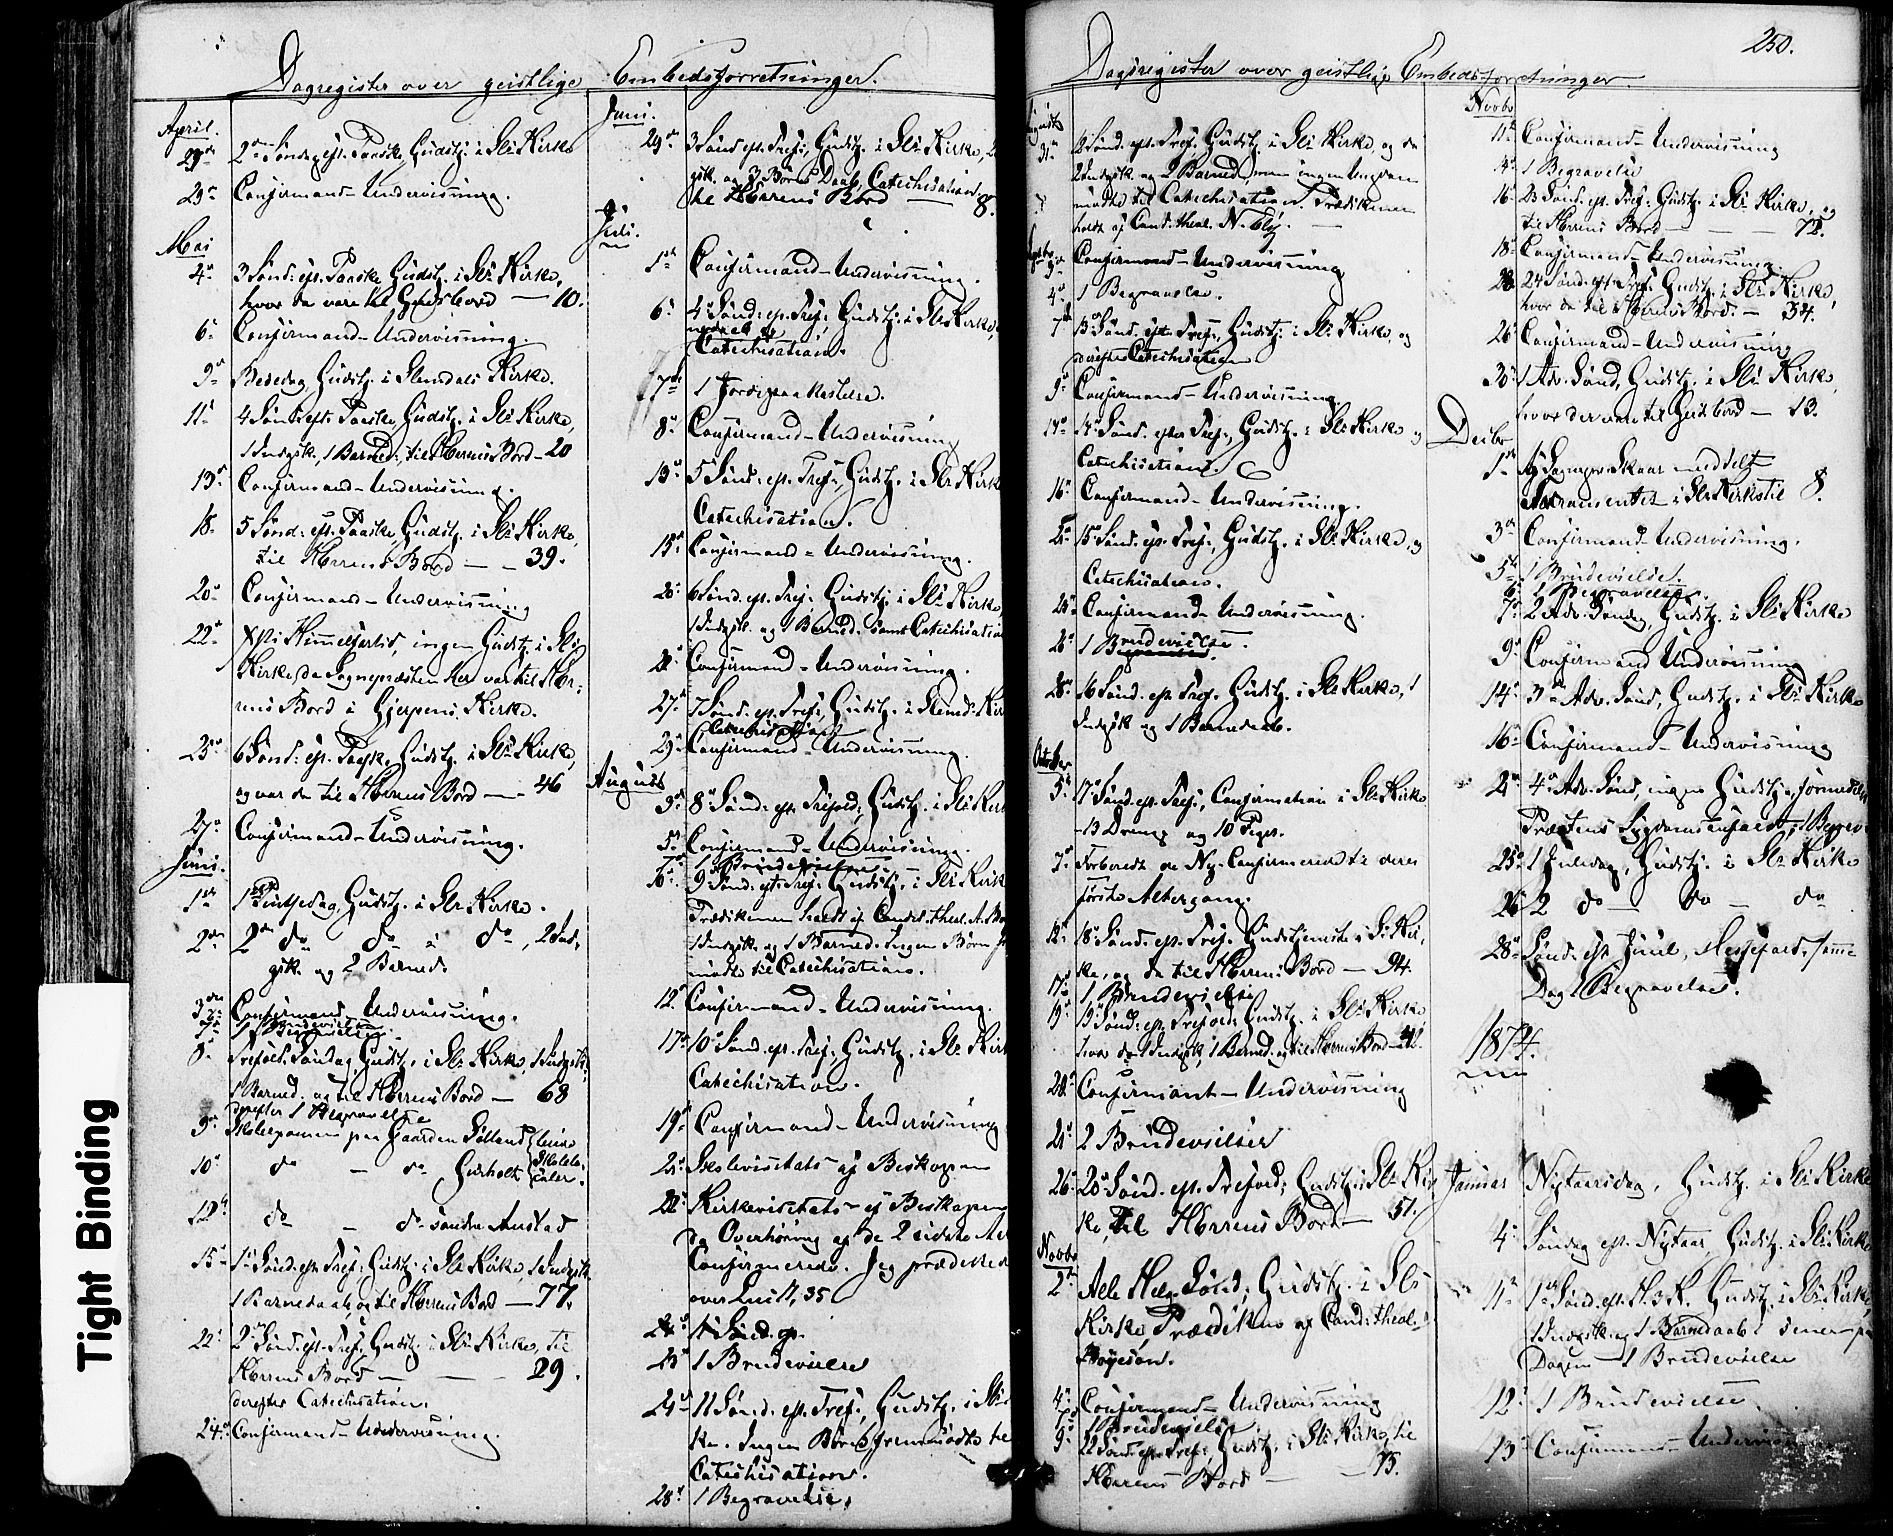 Dagregister over geistlige Embedsforretninger.
April.
2den Søndag eft. Paaske, Gudstj. i Sl: Kirke
Confirmand-Undervisning.
Mai
4de 3 Sønd: ef. Paaske Gudstj. i Sl: Kirke,
hvor da vare til Gudsbord — 10.
6te Confirmand-Undervisning.
9de Bededag, Gudstj. i Slemdals Kirke.
11te 4 Sønd. eft. Paaske, Gudstj. i Sl: Kirke,
1 Indgtk., 1 Barned., til Herrens Bord — 20
13de Confirmand-Undervisning.
18 5 Sønd: ef. Paaske, Gudstj. i Sl: Kirke,
til Herrens Bord — 39.
20de Confirmand-Undervisning
22de Xsti Himmelfartsd, ingen Gudstj. i Sl:
Kirke, da Sognepræsten her var til Her-
rens Bord i Gjerpens Kirke.
25de 6 Sønd: ef. Paaske, Gudstj. i Sl: Kirke,
og var der til Herrens Bord — 46
27de Confirmand-Undervisning.
Juni.
1ste 1ste Pintsedag, Gudstj. i Sl: Kirke.
2den 2den do do i do, 2 Ind-
gtk. og 2 Barned.
3die Confirmand-Undervisning.
7de 1 Brudevielse
8de Trefold. Søndag, Gudstj. i Sl: Kirke, 1 Indgtk.,
1 Barned. og til Herrens Bord — 68
derefter 1 Begravelse
9de Skoleexamen paa Gaarden Sølland
10de do — do Gurholt
12te do — do søndre Aastad
15de 1ste Sønd. ef. Tref., Gudstj. i Sl: Kirke, 1 Indgtk.
1 Barnedaab, og til Herrens Bord — 77.
22de 2den Sønd. ef. Tref., Gudstj. i Sl: Kirke, til
Herrens Bord — 29.
derefter Catechisation.
24de Confirmand-Undervisning.
Juni.
29de 3 Sønd. ef. Tref., Gudstj. i Sl: Kirke, 2
gtk. og 3 Børns Daab, Catechisation,
til Herrens Bord — 8.
Juli.
1ste Confirmand-Undervisning.
6te 4de Sønd: ef. Tref., Gudstj. i Sl: Kirke,
Catechisation.
7de 1 Jordspaakastelse.
8de Confirmand-Undervisning
13de 5te Sønd: ef. Tref., Gudstj. i Sl: Kirke
Catechisation.
15de Confirmand-Undervisning.
20de 6 Sønd. ef. Tref: Gudstj. i Sl: Kirke
1 Indgtk. og 1 Barned. samt Catechisation
22de Confirmand-Undervisning.
27de 7 Sønd. ef. Tref., Gudstj. i Slemd: Kir
Catechisation
29de Confirmand-Undervisning
August
3die 8de Sønd: ef. Trefold, Gudstj. i Sl: Kirke
5te Confirmand-Undervisning.
1 Brudevielse
10de 9 Sønd: eft. Tref., Gudstj. i Sl: Kirk
Prædikenen holdt af Candid. theol. A. Bo
1 Indgtk. og 1 Barned. Ingen Børn fre
mødte til Catechisation.
12te Confirmand-Undervisning.
17de 10de Sønd. ef. Tref., Gudstj. i Sl: Kirk
Catechisation.
19de Confirmand-Undervisning
21de Skolevisitats af Biskopen
22de Kirkevisitats af Biskopen
da Overhøring af de 2 sidste Aar
Confirmerede. Jeg prædikede
over Luc. 11, 35
23de 1 Brudevielse
24de 11 Sønd. ef. Tref., Gudstj. i Sl: Kir
ke. Ingen Børn fremmødte til
Catechisation.
28de 1 Begravelse.
250.
Dagregister over geistlige Embedsforretninger.
August
31te 12 Sønd. ef. Tref., Gudstj. i Sl: Kirke, og da
2 Indgtk. og 2 Barned., men ingen Ungdom
mødte til Catechisation. Prædikenen
holdt af Cand. theol. N.
Confirmand-Undervisning
4de 1 Begravelse.
7de 13de Sønd. ef. Tref., Gudstj. i Sl: Kirke, og
derefter Catechisation
9de Confirmand-Undervisning.
14de 14de Sønd. efter Tref., Gudstj. i Sl: Kirke og
Catechisation.
16de Confirmand-Undervisning.
21de 15de Sønd. ef. Tref., Gudstj. i Sl: Kirke, og
Catechisation.
Confirmand-Undervisning.
26de 1 Brudevielse.
28de 16 Sønd. ef. Tref., Gudstj. i Sl: Kirke, 1
Indgtk. og 1 Barnedaab.
October
5te 17de Sønd. ef. Tref., Confirmation i Sl: Kirke
— 13 Drenge og 10 Piger.
7de Forberedt de Ny-Confirmerede til deres
første Altergang.
12te 18de Sønd. ef. Tref., Gudstjeneste i Sl: Kir-
ke, og da til Herrens Bord — 94.
17de 1 Brudevielse
19de 19de Sønd: ef. Trefold: Gudstj. i Sl: Kirke
hvor da 1 Indgtk., 1 Barned. og til Herrens Bord —
Confirmant-Undervisning
2 Brudevielser
26de 20de Sønd. ef. Trefold; Gudstj. i Sl: Kir
ke, til Herrens Bord — 51.
Novbr
2den Alle Helg. Sønd; Gudstj. i Sl:
Kirke, Prædiken af Cand: theol.
Boyesen.
4de Confirmand-Undervisning
1 Brudevielse
9de 22 Sønd. ef. Tref., Gudstj. i Sl: Kirke, til
Herrens Bord — 75.
Novbr
11te Confirmand-Undervisning
1 Begravelse
16de 23 Sønd. ef. Tref., Gudstj. i Sl: Kirke, og
til Herrens Bord — 72.
18de Confirmand-Undervisning.
24 Sønd. ef. Tref., Gudstj. i Sl: Kirke,
hvor da til Herrens Bord. — 34.
26de Confirmand-Undervisning
30te 1 Adv. Sønd, Gudstj. i Sl: Kirke,
hvor der vare til Guds bord — 13.
Decbr
1ste Af Sognepr. Skaar meddelt
Sacramentet i Sl: Kirke til 8.
3die Confirmand-Undervisning.
5te 1 Brudevielse.
6te 1 Begravelse
7de 2 Adv. Søndag, Gudstj. i Sl: Kirke
9de Confirmand Undervisning
14de 3die Adv. Sønd, Gudstj. i Sl: Kirke
16de Confirmand-Undervisning
21de 4de Adv. Sønd, ingen Gudstj., formedelst
Præstens Sygdomstilfælde, 1 Begrav
25de 1 Juledag, Gudstj. i Sl: Kirke
26de 2 do — do — do
28de Sønd. eft Juul, Messefald, samme
Dag 1 Begravelse.
1874.
Januar Nytaarsdag, Gudstj. i Sl: Kirke
4de Søndag ef. Nytaar, Gudstj. i Sl: Kirke
11te 1ste Sønd. ef. H. 3 K. Gudstj. i Sl: Kirke,
1 Indgtk. og 1 Barnedaab; senere paa
Dagen — 1 Brudevielse
12te 1 Brudevielse.
13de Confirmand-Undervisning
Tight Binding